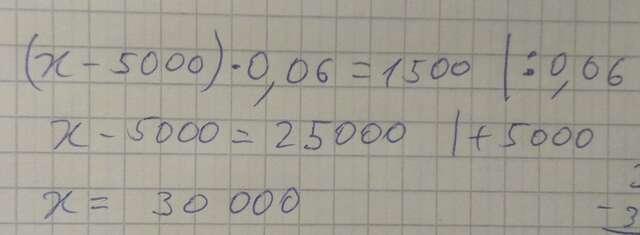 (x - 5000) · 0,06 = 1500 | : 0,06
x - 5000 = 25000 | + 5000
x = 30 000
- 3